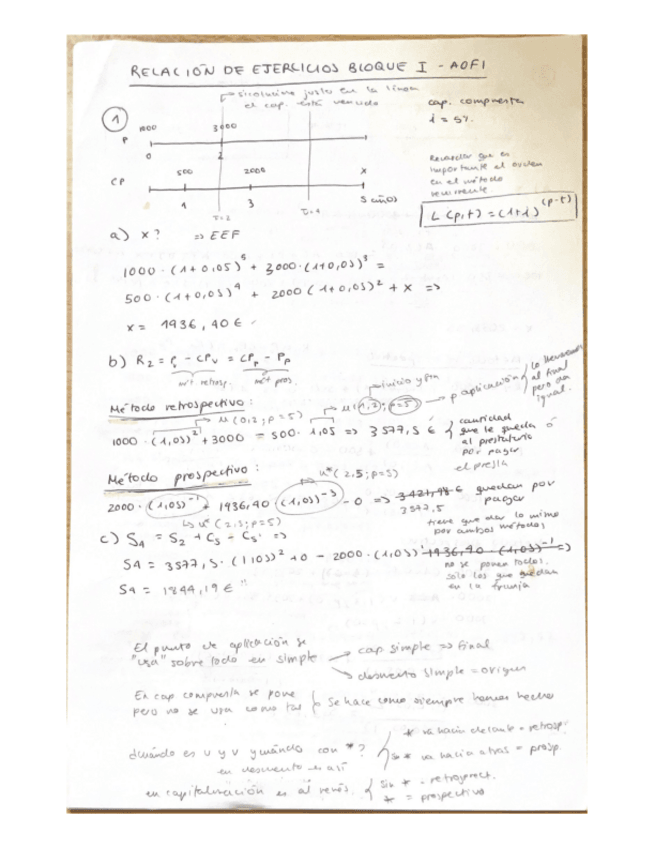 RELACIÓN DE EJERCICIOS BLOQUE I - AOFI
si coincide justo en la línea
el cap. está vencido
cap. compuesta
i = 5%
1
1000 3000
P
0 2
500 2000 X
CP
1 3 5 años
τ=2 τ=4
Recordar que es
importante el orden
en el método
recurrente
L(p,t) = (1+i)^(p-t)
a) x? => EEF
1000·(1+0,05)^5 + 3000·(1+0,05)^3 =
500·(1+0,05)^4 + 2000(1+0,05)^2 + x =>
x = 1936,40 €
b) R2 = Pv - CPv = CPp - Pp
mét retrosp. mét pros.
inicio y fin
Método retrospectivo:
u(1,2; p=5) → p aplicación
lo llevamos
al final
pero da
igual.
u(0,2; p=5)
1000·(1,05)^2 + 3000 - 500·1,05 => 3577,5 €
cantidad
que le queda
al prestatario
por pagar
el presta
Método prospectivo:
u*(2,5; p=5)
2000·(1,05)^-1 + 1936,40 (1,05)^-3 - 0 => 3421,98 € quedan por
pagar
3577,5
u*(2,3; p=5)
tiene que dar lo mismo
por ambos métodos
c) S4 = S2 + C3 - C3' =>
S4 = 3577,5·(1,05)^2 + 0 - 2000·(1,05)^1 1936,40·(1,05)^-1 =>
no se ponen todos,
sólo los que quedan
en la franja
S4 = 1844,19 €
El punto de aplicación se
"usa" sobre todo en simple
cap simple => final
descuento simple = origen
En cap. compuesta se pone
pero no se usa como tal
Se hace como siempre hemos hecho
¿cuándo es u y v y cuándo con *?
en descuento es así
* va hacia delante = retrosp.
sin * va hacia atrás = prosp.
en capitalización es al revés.
sin * = retrospect.
* = prospectivo